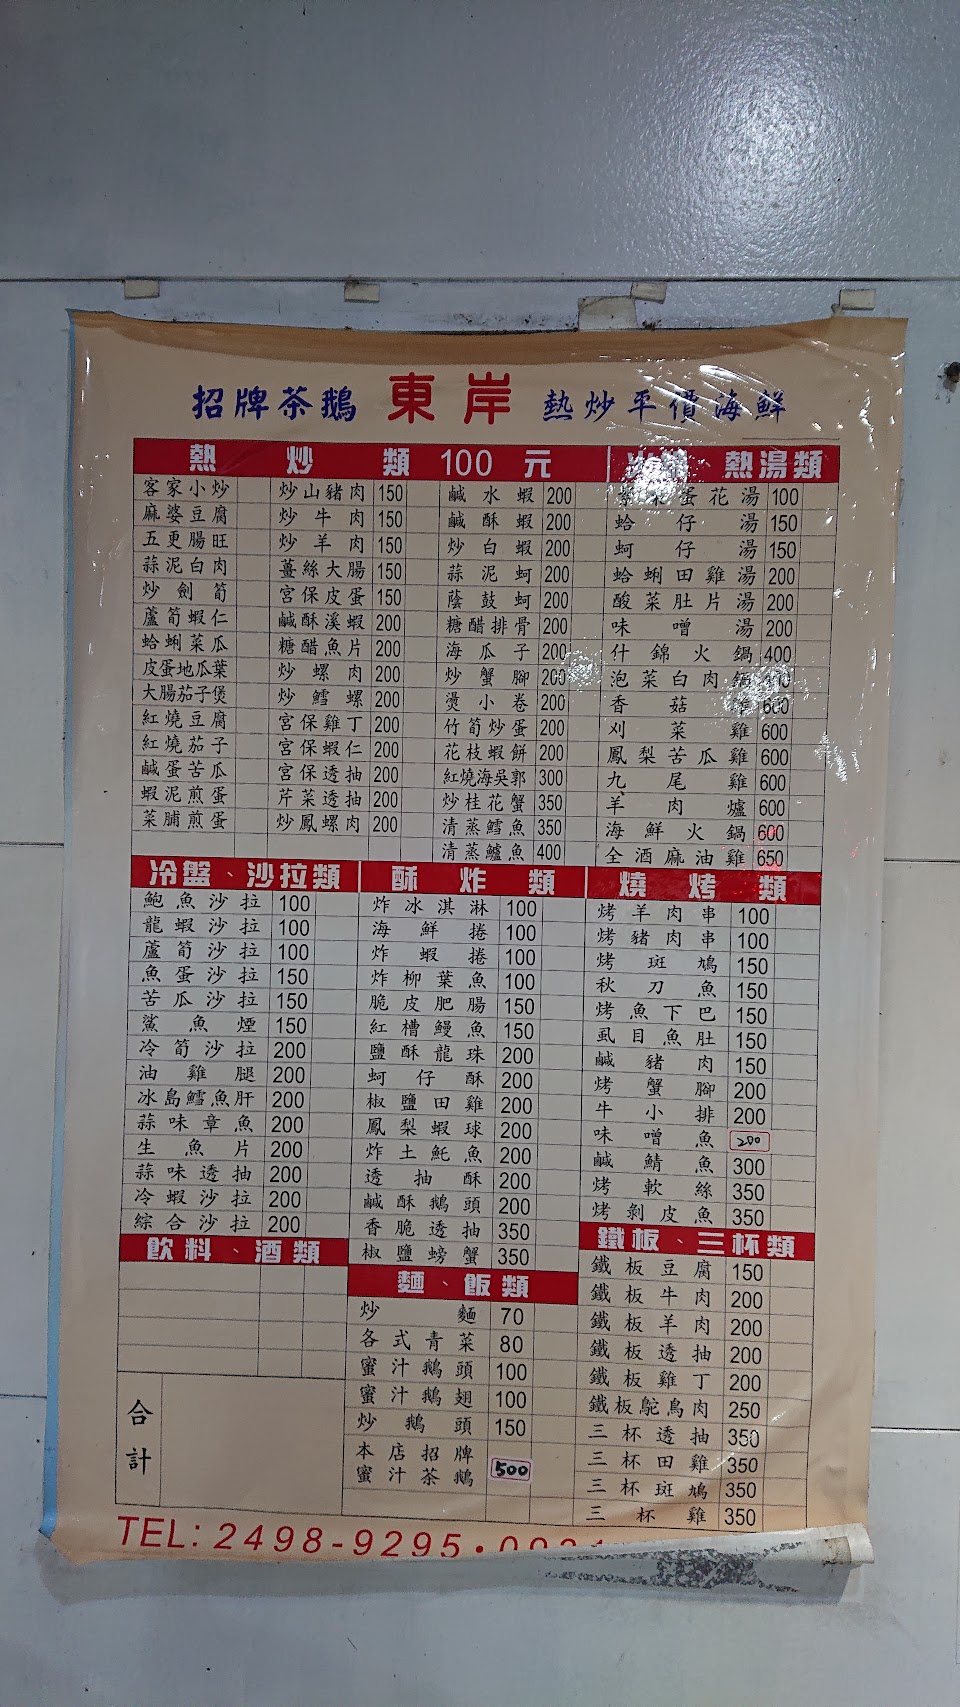 招牌茶鵝 東岸 熱炒平價海鮮
熱炒類100元
客家小炒
麻婆豆腐
五更腸旺
蒜泥白肉
炒劍筍
蘆筍蝦仁
蛤蜊菜瓜
皮蛋地瓜葉
大腸茄子煲
紅燒豆腐
紅燒茄子
鹹蛋苦瓜
蝦泥煎蛋
菜脯煎蛋
炒山豬肉 150
炒牛肉 150
炒羊肉 150
薑絲大腸 150
宮保皮蛋 150
鹹酥溪蝦 200
糖醋魚片 200
炒螺肉 200
炒鱈螺 200
宮保雞丁 200
宮保蝦仁 200
宮保透抽 200
芹菜透抽 200
炒鳳螺肉 200
鹹水蝦 200
鹹酥蝦 200
炒白蝦 200
蒜泥蚵 200
蔭鼓蚵 200
糖醋排骨 200
海瓜子 200
炒蟹腳 200
燙小卷 200
竹筍炒蛋 200
花枝蝦餅 200
紅燒海吳郭 300
炒桂花蟹 350
清蒸鱈魚 350
清蒸鱸魚 400
、熱湯類
蛋花湯 100
蛤仔湯 150
蚵仔湯 150
蛤蜊田雞湯 200
酸菜肚片湯 200
味噌湯 200
什錦火鍋 400
泡菜白肉鍋
香菇 600
刈菜雞 600
鳳梨苦瓜雞 600
九尾雞 600
羊肉爐 600
海鮮火鍋 600
全酒麻油雞 650
冷盤、沙拉類
鮑魚沙拉 100
龍蝦沙拉 100
蘆筍沙拉 100
魚蛋沙拉 150
苦瓜沙拉 150
鯊魚煙 150
冷筍沙拉 200
油雞腿 200
冰島鱈魚肝 200
蒜味章魚 200
生魚片 200
蒜味透抽 200
冷蝦沙拉 200
綜合沙拉 200
飲料、酒類
合計
酥炸類
炸冰淇淋 100
海鮮捲 100
炸蝦捲 100
炸柳葉魚 100
脆皮肥腸 150
紅槽鰻魚 150
鹽酥龍珠 200
蚵仔酥 200
椒鹽田雞 200
鳳梨蝦球 200
炸土魠魚 200
透抽酥 200
鹹酥鵝頭 200
香脆透抽 350
椒鹽螃蟹 350
麵、飯類
炒麵 70
各式青菜 80
蜜汁鵝頭 100
蜜汁鵝翅 100
炒鵝頭 150
本店招牌
蜜汁茶鵝 500
燒烤類
烤羊肉串 100
烤豬肉串 100
烤斑鳩 150
秋刀魚 150
烤魚下巴 150
虱目魚肚 150
鹹豬肉 150
烤蟹腳 200
牛小排 200
味噌魚 200
鹹鯖魚 300
烤軟絲 350
烤剝皮魚 350
鐵板、三杯類
鐵板豆腐 150
鐵板牛肉 200
鐵板羊肉 200
鐵板透抽 200
鐵板雞丁 200
鐵板鴕鳥肉 250
三杯透抽 350
三杯田雞 350
三杯斑鳩 350
三杯雞 350
TEL: 2498-9295 •